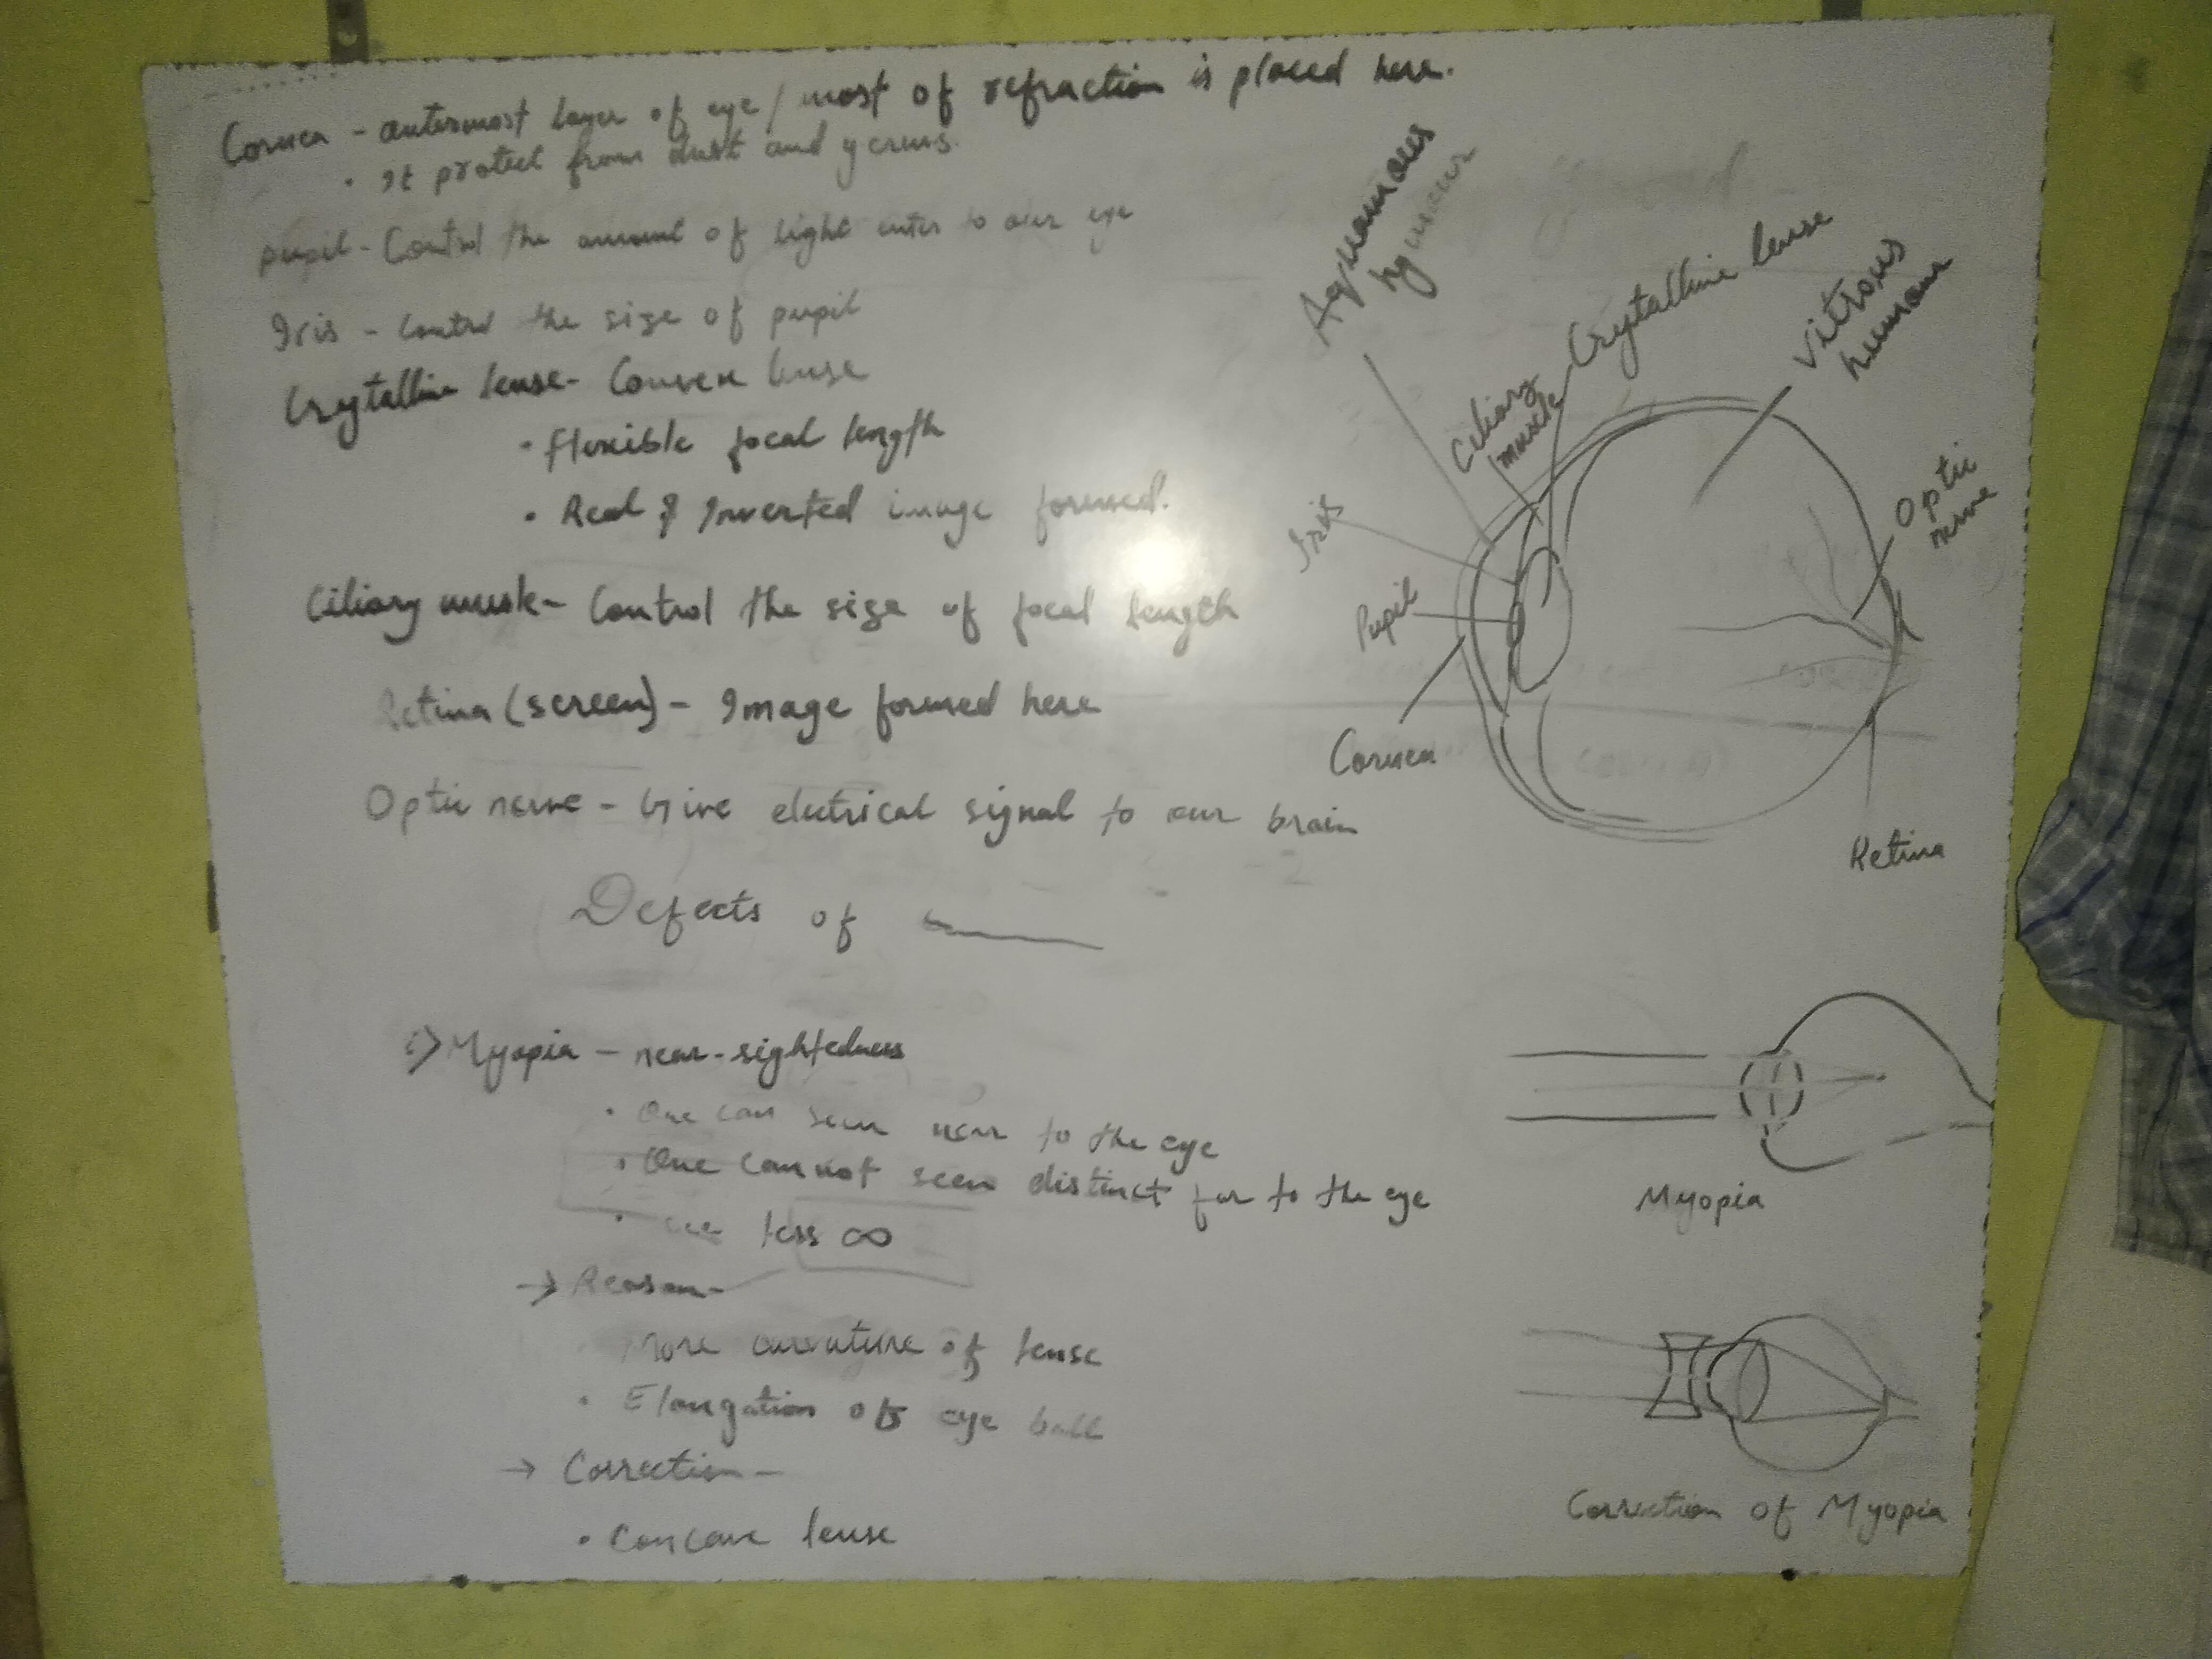 Cornea - outermost layer of eye / most of refraction is placed here.
• It protect from dust and germs.
pupil - Control the amount of light enter to our eye
Iris - Control the size of pupil
Crytalline lense - Convex lense
• Flexible focal length
• Real & Inverted image formed.
Ciliary muscle - Control the size of focal length
Retina (screen) - Image formed here
Optic nerve - Give electrical signal to our brain
Defects of
i) Myopia - near-sightedness
• One can seen near to the eye
• One cannot seen distinct far to the eye
• see less ∞
→ Reason -
More curvature of lense
• Elongation of eye ball
→ Correction -
• Concave lense
Crytalline lense
Vitrous
humour
Ciliary
muscle
Optic
nerve
Iris
Pupil
Cornea
Retina
Myopia
Correction of Myopia